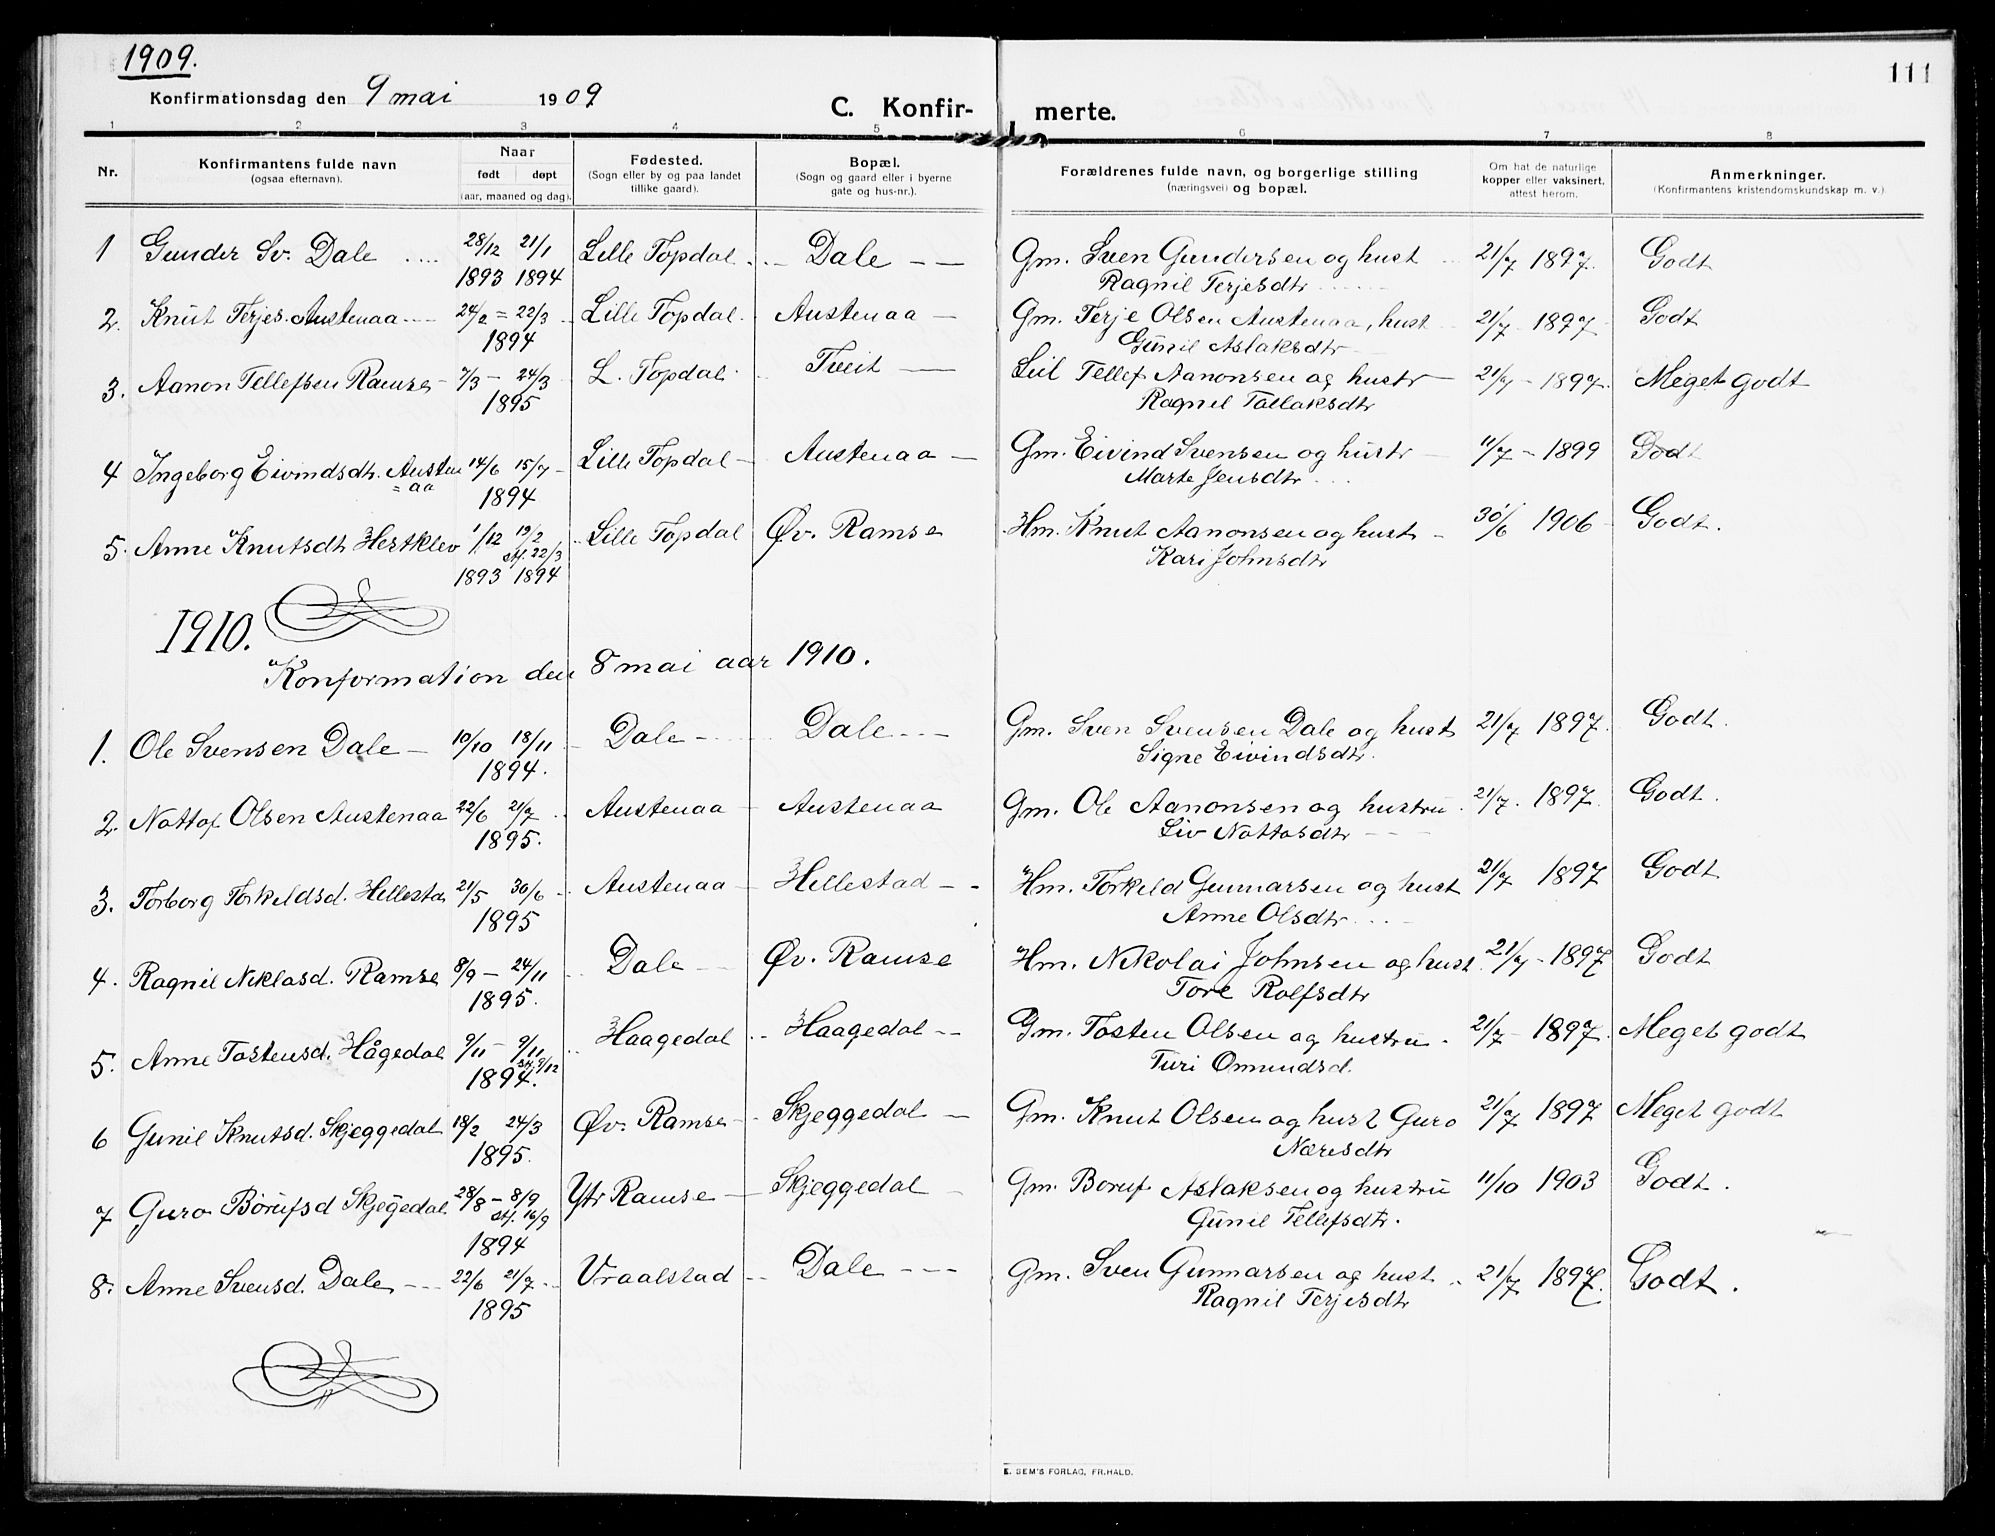 1909.
111
Konfirmationsdag den 9 mai 1909
C. Konfir- merte.
1 2 3 4 5 6 7 8
Nr.
Konfirmantens fulde navn
(ogsaa efternavn).
Naar
født døpt
(aar, maaned og dag).
Fødested.
(Sogn eller by og paa landet
tillike gaard).
Bopæl.
(Sogn og gaard eller i byerne
gate og hus-nr.).
Forældrenes fulde navn, og borgerlige stilling
(næringsvei) og bopæl.
Om hat de naturlige
kopper eller vaksinert,
attest herom.
Anmerkninger.
(Konfirmantens kristendomskundskap m. v.)
1 Gunder Sv. Dale .... 28/12 21/1 Lille Topdal . .. Dale - - Gm. Sven Gundersen og hust 21/7 1897. Godt
1893 1894 Ragnil Terjesdtr
2. Knut Terjes. Austenaa 24/2 = 22/3 Lille Topdal. Austenaa - Gm. Terje Olsen Austenaa, hust 21/7 - 1897 Godt
1894 Gunil Aslaksdtr
3. Aanon Tellefsen Ramse - 7/3 - 24/3 L. Topdal. Tveit - Leil Tellef Aanonsen og hustr 21/7 - 1897. Meget godt
1895 Ragnil Tallaksdtr
4 Ingeborg Eivindsdtr. Austen 14/6 15/7 - Lille Topdal - Austenaa - Gm. Eivind Svensen og hustr 11/7 - 1899 Godt
=aa 1894 Marte Jensdtr ...
5. Anne Knutsdt Hertklev 1/12 19/2 Lille Topdal Øv. Ramse Hm. Knut Aanonsen og hust - 30/6 1906 Godt.
st. 22/3
1893 1894 Kari Johnsdtr
1910.
Konformation den 8 mai aar 1910.
1. Ole Svensen Dale - 10/10 18/11 - Dale - Dale - - - Gm. Sven Svensen Dale og hust 21/7 1897. Godt.
1894. Signe Eivindsdtr.
2. Nottof Olsen Austenaa 22/6 21/7 .. Austenaa - Austenaa Gm. Ole Aanonsen og hustru. 21/7. 1897. Godt.
1895. Liv Nottosdtr - - -
3. Torborg Torkeldsd. Hellestad 21/5 30/6 - Austenaa - Hellestad - - Hm. Torkeld Gunnarsen og hust 21/7 1897 Godt
1895 Anne Olsdtr ...
4. Ragnil Niklasd. Ramse 8/9 - 24/11 .. Dale - Øv. Ramse Hm. Nikolai Johnsen og hust. 21/7 - 1897 Godt
1895. Tore Rolfsdtr
5. Anne Tostensd. Hågedal 9/11 - 9/11 .. Haagedal .. Haagedal - - Gm. Tosten Olsen og hustru. 21/7 - 1897. Meget godt
1894. st. 9/12 Turi Omundsd.
6 Gunil Knutsd. Skjeggedal 18/2 24/3 Øv. Ramse - Skjeggedal - Gm. Knut Olsen og hust Guro 21/7 1897 Meget godt
1895. Næresdtr
7 Guro Børufsd Skjegedal 28/8 - 8/9 Ytr Ramse - Skjeggedal - Gm. Boruf Aslaksen og hustru 11/10 1903 Godt.
st. 16/9
1894 Gunil Tellefsdtr.
8. Anne Svensd. Dale - - - 22/6 21/7 .. Vraalstad .. Dale - - - Gm. Sven Gunnarsen og hust .. 21/7 1897. Godt.
1895 Ragnil Terjesdtr
E. SEM'S FORLAG, FR.HALD.